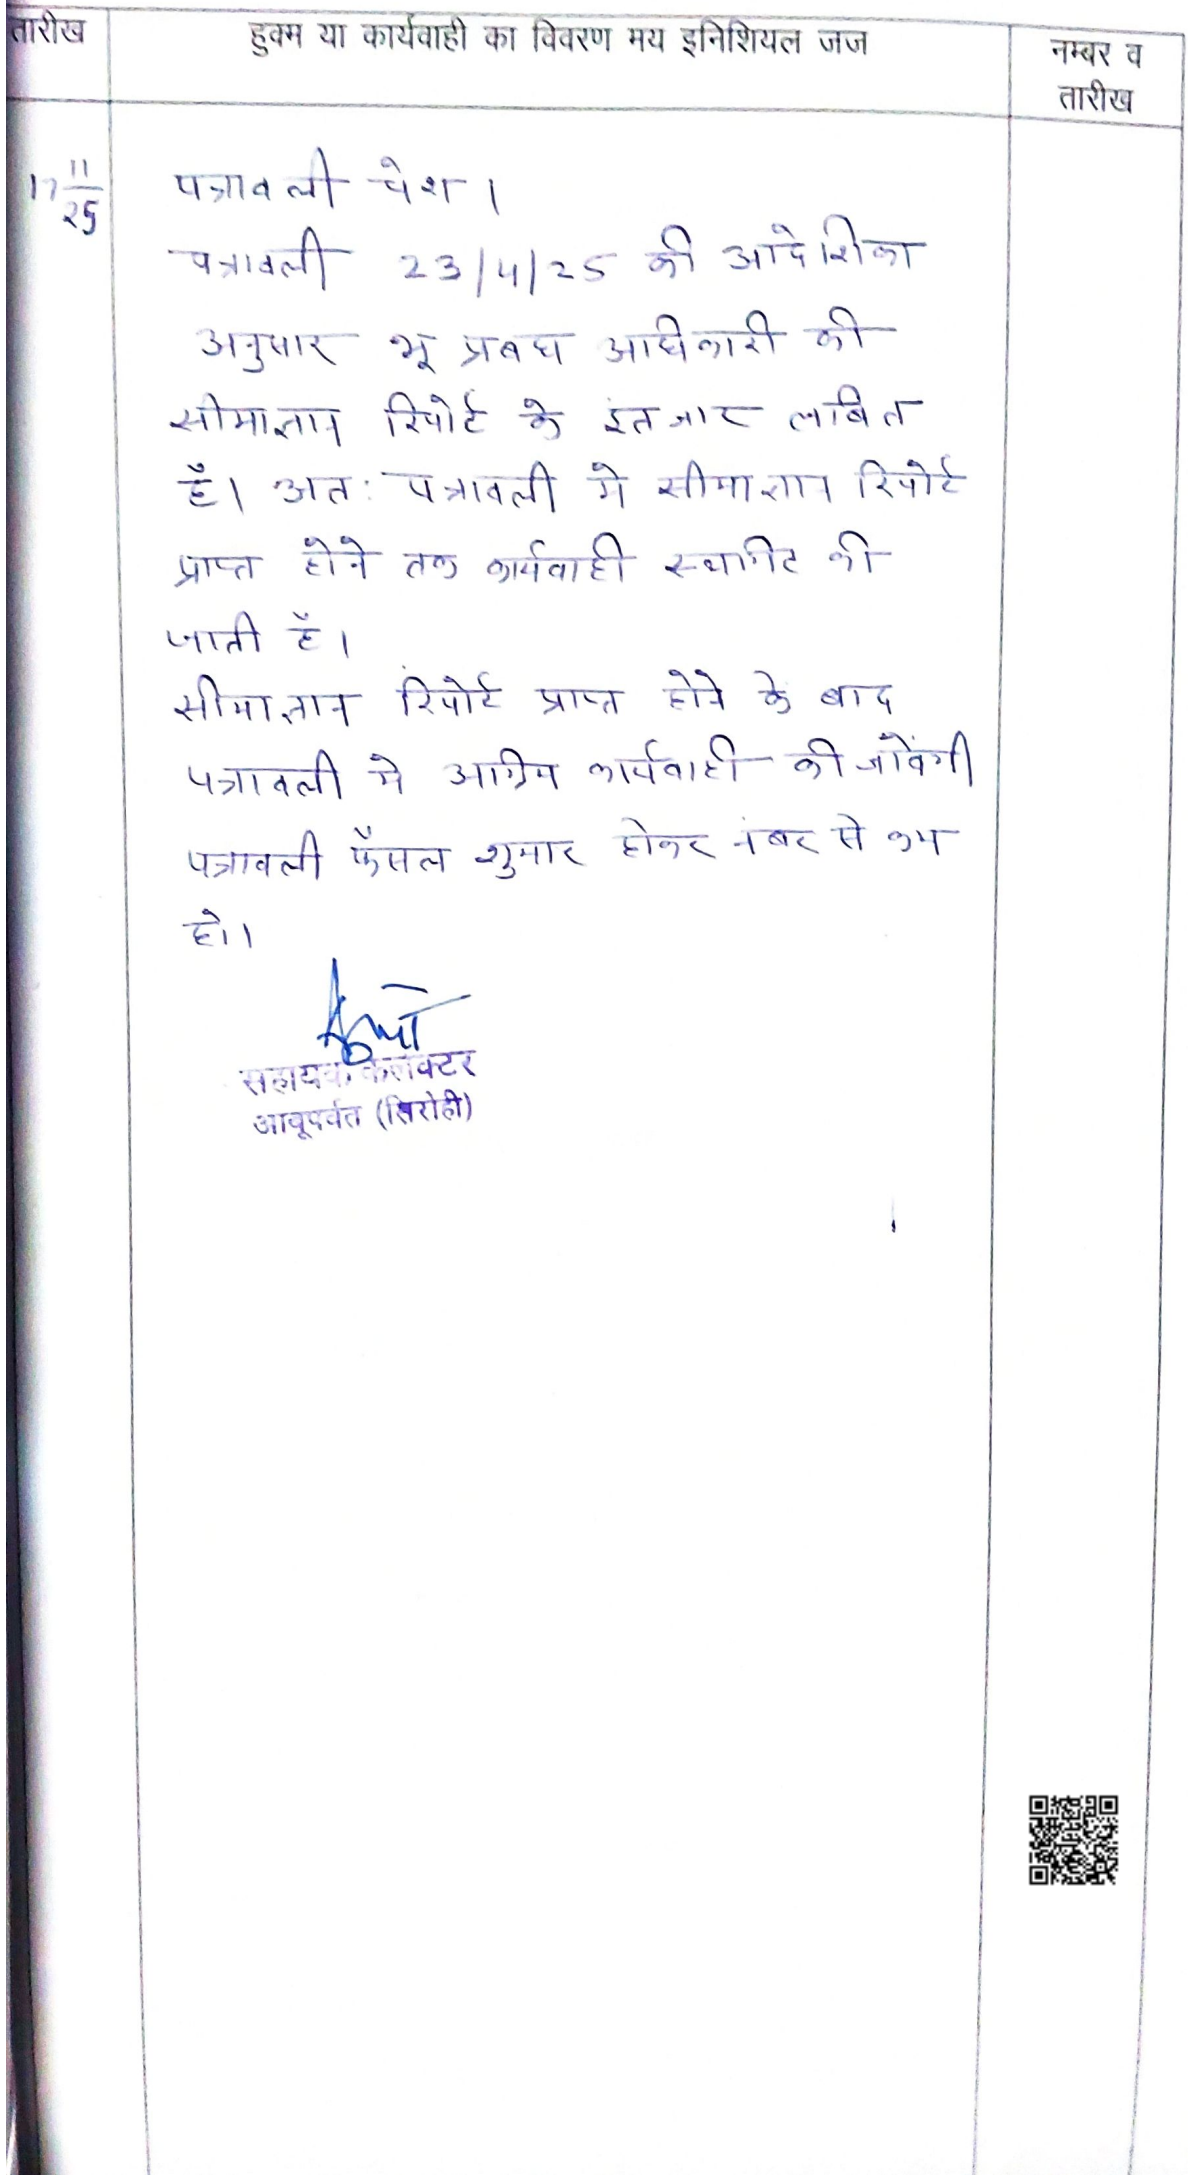 तारीख
हुक्म या कार्यवाही का विवरण मय इनिशियल जज
नम्बर व
तारीख
17 11/25
पत्रावली पेश।
पत्रावली 23/4/25 की आदेशिका
अनुसार भू प्रबध अधिकारी की
सीमाज्ञान रिपोर्ट के इंतजार लबित
हैं। अतः पत्रावली मे सीमाज्ञान रिपोर्ट
प्राप्त होने तक कार्यवाही स्थगिट की
जाती हैं।
सीमाज्ञान रिपोर्ट प्राप्त होने के बाद
पत्रावली मे अग्रिम कार्यवाही की जावेंगी
पत्रावली फैसल शुमार होकर नंबर से कम
हो।।
सहायक कलक्टर
आबूपर्वत (सिरोही)